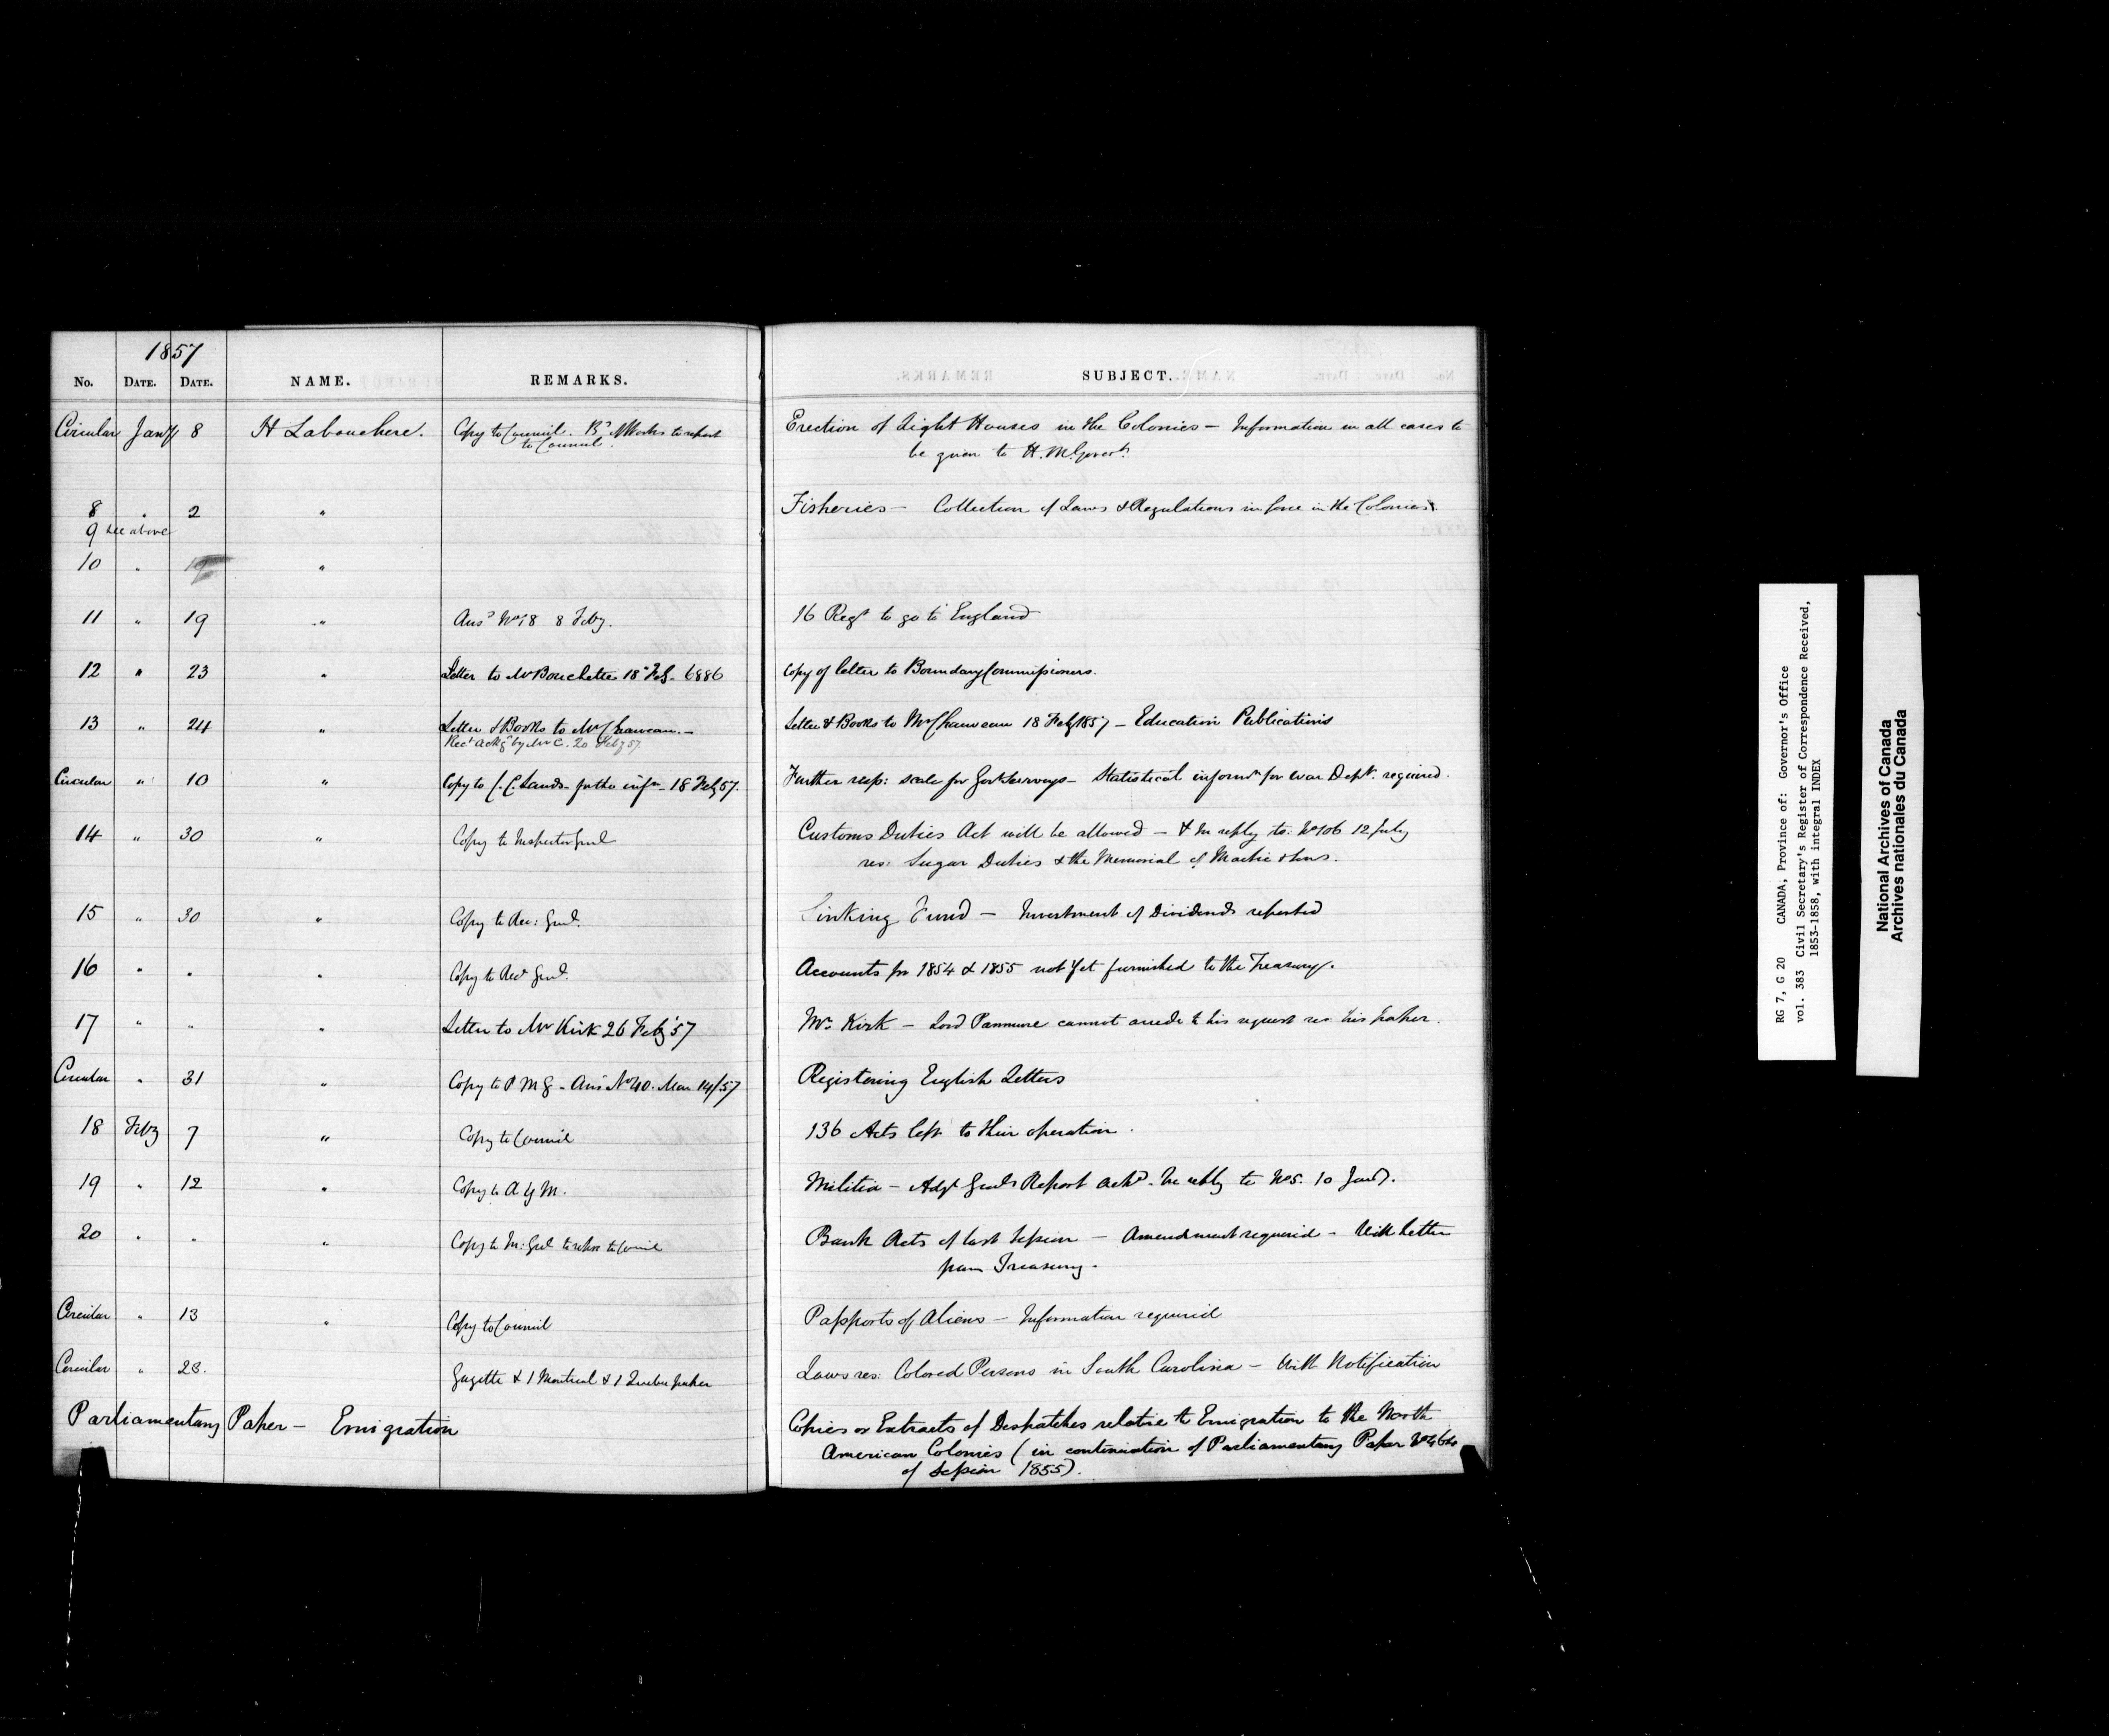 1857
No. DATE. DATE. NAME. REMARKS. SUBJECT.
Circular Jany 8 H Labouchere. Copy to Council. Bd of Works to report Erection of Light Houses in the Colonies — Information in all cases to
to Council. be given to H. M. Govert.
8 " 2 " Fisheries — Collection of Laws & Regulations in force in the Colonies.
9 See above
10 " "
11 " 19 " Ansd No 18 8 Feby. 16 Regt to go to England
12 " 23 " Letter to Mr Bouchette 18 Feb. 6886 Copy of letter to Boundary Commissioners.
13 " 24 " Letter & Books to Mr Chauveau. — Letter & Books to Mr Chauveau 18 Feby 1857 — Education Publications
Rect ackgd by Mr C. 20 Feby 57
Circular " 10 " Copy to C. C. Lands - further infn - 18 Feby 57. Further resp: scale for Govt Surveys — Statistical informn for War Dept. required.
14 " 30 " Copy to Inspector Genl Customs Duties Act will be allowed — & In reply to No 106 12 July
res: Sugar Duties & the Memorial of & Sons.
15 " 30 " Copy to Rec: Genl. Sinking Fund — Investment of Dividends reported
16 " " " Copy to Recr Genl. Accounts for 1854 & 1855 not yet furnished to the Treasury.
17 " " " Letter to Mr Kirk 26 Feby '57 Mr Kirk — Lord Panmure cannot accede to his request res: his father.
Circular " 31 " Copy to P M G - Ansd No 40. Mar 14/57 Registering English Letters
18 Feby 7 " Copy to Council 136 Acts left to their operation.
19 " 12 " Copy to A G M. Militia — Adjt Genls Report ackd. In reply to No 5. 10 Jany.
20 " " " Copy to In: Genl to report to Council Bank Acts of last Session — Amendment required - With letter
from Treasury.
Circular " 13 " Copy to Council Passports of Aliens — Information required
Circular " 28. Gazette & 1 Montreal & 1 Quebec paper Laws res: Colored Persons in South Carolina — With Notification
Parliamentary Paper — Emigration Copies or Extracts of Despatches relative to Emigration to the North
American Colonies (in continuation of Parliamentary Paper No 464
of Session 1855).
RG 7, G 20 CANADA, Province of: Governor's Office
vol. 383 Civil Secretary's Register of Correspondence Received,
1853-1858, with integral INDEX
National Archives of Canada
Archives nationales du Canada